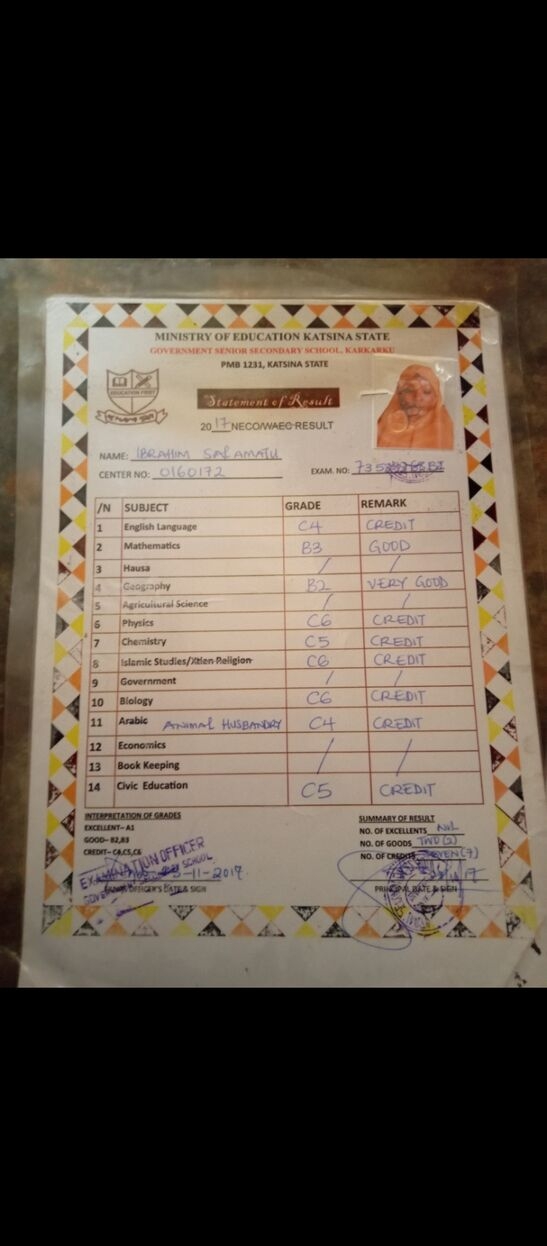 MINISTRY OF EDUCATION KATSINA STATE
GOVERNMENT SENIOR SECONDARY SCHOOL, KARKARKU
PMB 1231, KATSINA STATE
EDUCATION FIRST
Statement of Result
2017 NECO/WAEC RESULT
NAME: IBRAHIM SALAMATU
CENTER NO: 0160172 EXAM. NO: 735
/N SUBJECT GRADE REMARK
1 English Language C4 CREDIT
2 Mathematics B3 GOOD
3 Hausa / /
4 Geography B2 VERY GOOD
5 Agricultural Science / /
6 Physics C6 CREDIT
7 Chemistry C5 CREDIT
8 Islamic Studies/Xtien Religion C6 CREDIT
9 Government / /
10 Biology C6 CREDIT
11 Arabic ANIMAL HUSBANDRY C4 CREDIT
12 Economics / /
13 Book Keeping
14 Civic Education C5 CREDIT
INTERPRETATION OF GRADES
EXCELLENT-A1
GOOD-B2,B3
CREDIT-C4,C5,C6
EXAMINATION OFFICER
SCHOOL
-11-2017
OFFICER'S DATE & SIGN
SUMMARY OF RESULT
NO. OF EXCELLENTS NIL
NO. OF GOODS TWO (2)
NO. OF CREDITS SEVEN (7)
PRINCIPAL DATE & SIGN